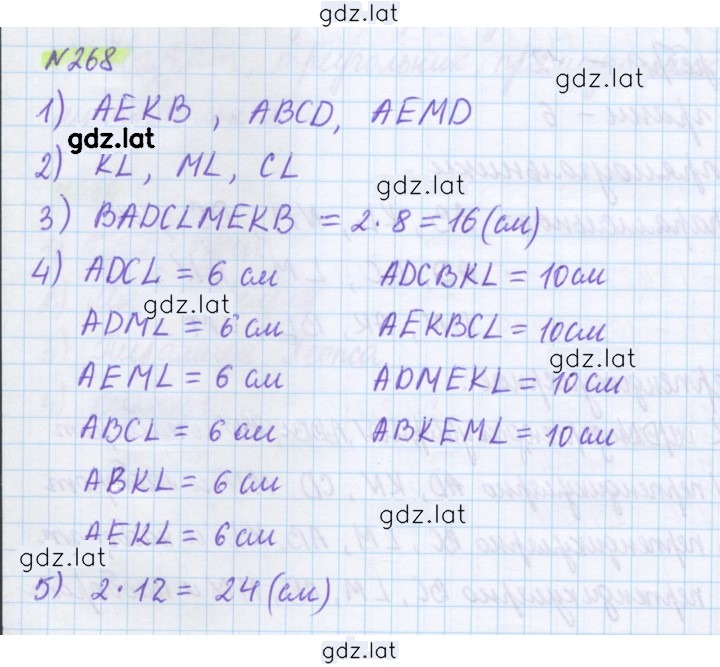 gdz.lat
№268
gdz.lat
1) AEKB, ABCD, AEMD
gdz.lat
2) KL, ML, CL
gdz.lat
3) BADCLMEKB = 2·8=16(см)
4) ADCL = 6 см ADCBKL = 10см
gdz.lat
ADML = 6 см AEKBCL = 10см
gdz.lat
AEML = 6 см ADMEKL = 10см
ABCL = 6 см ABKEML = 10см
ABKL = 6 см
gdz.lat
AEKL = 6 см
gdz.lat
5) 2·12 = 24(см)
gdz.lat